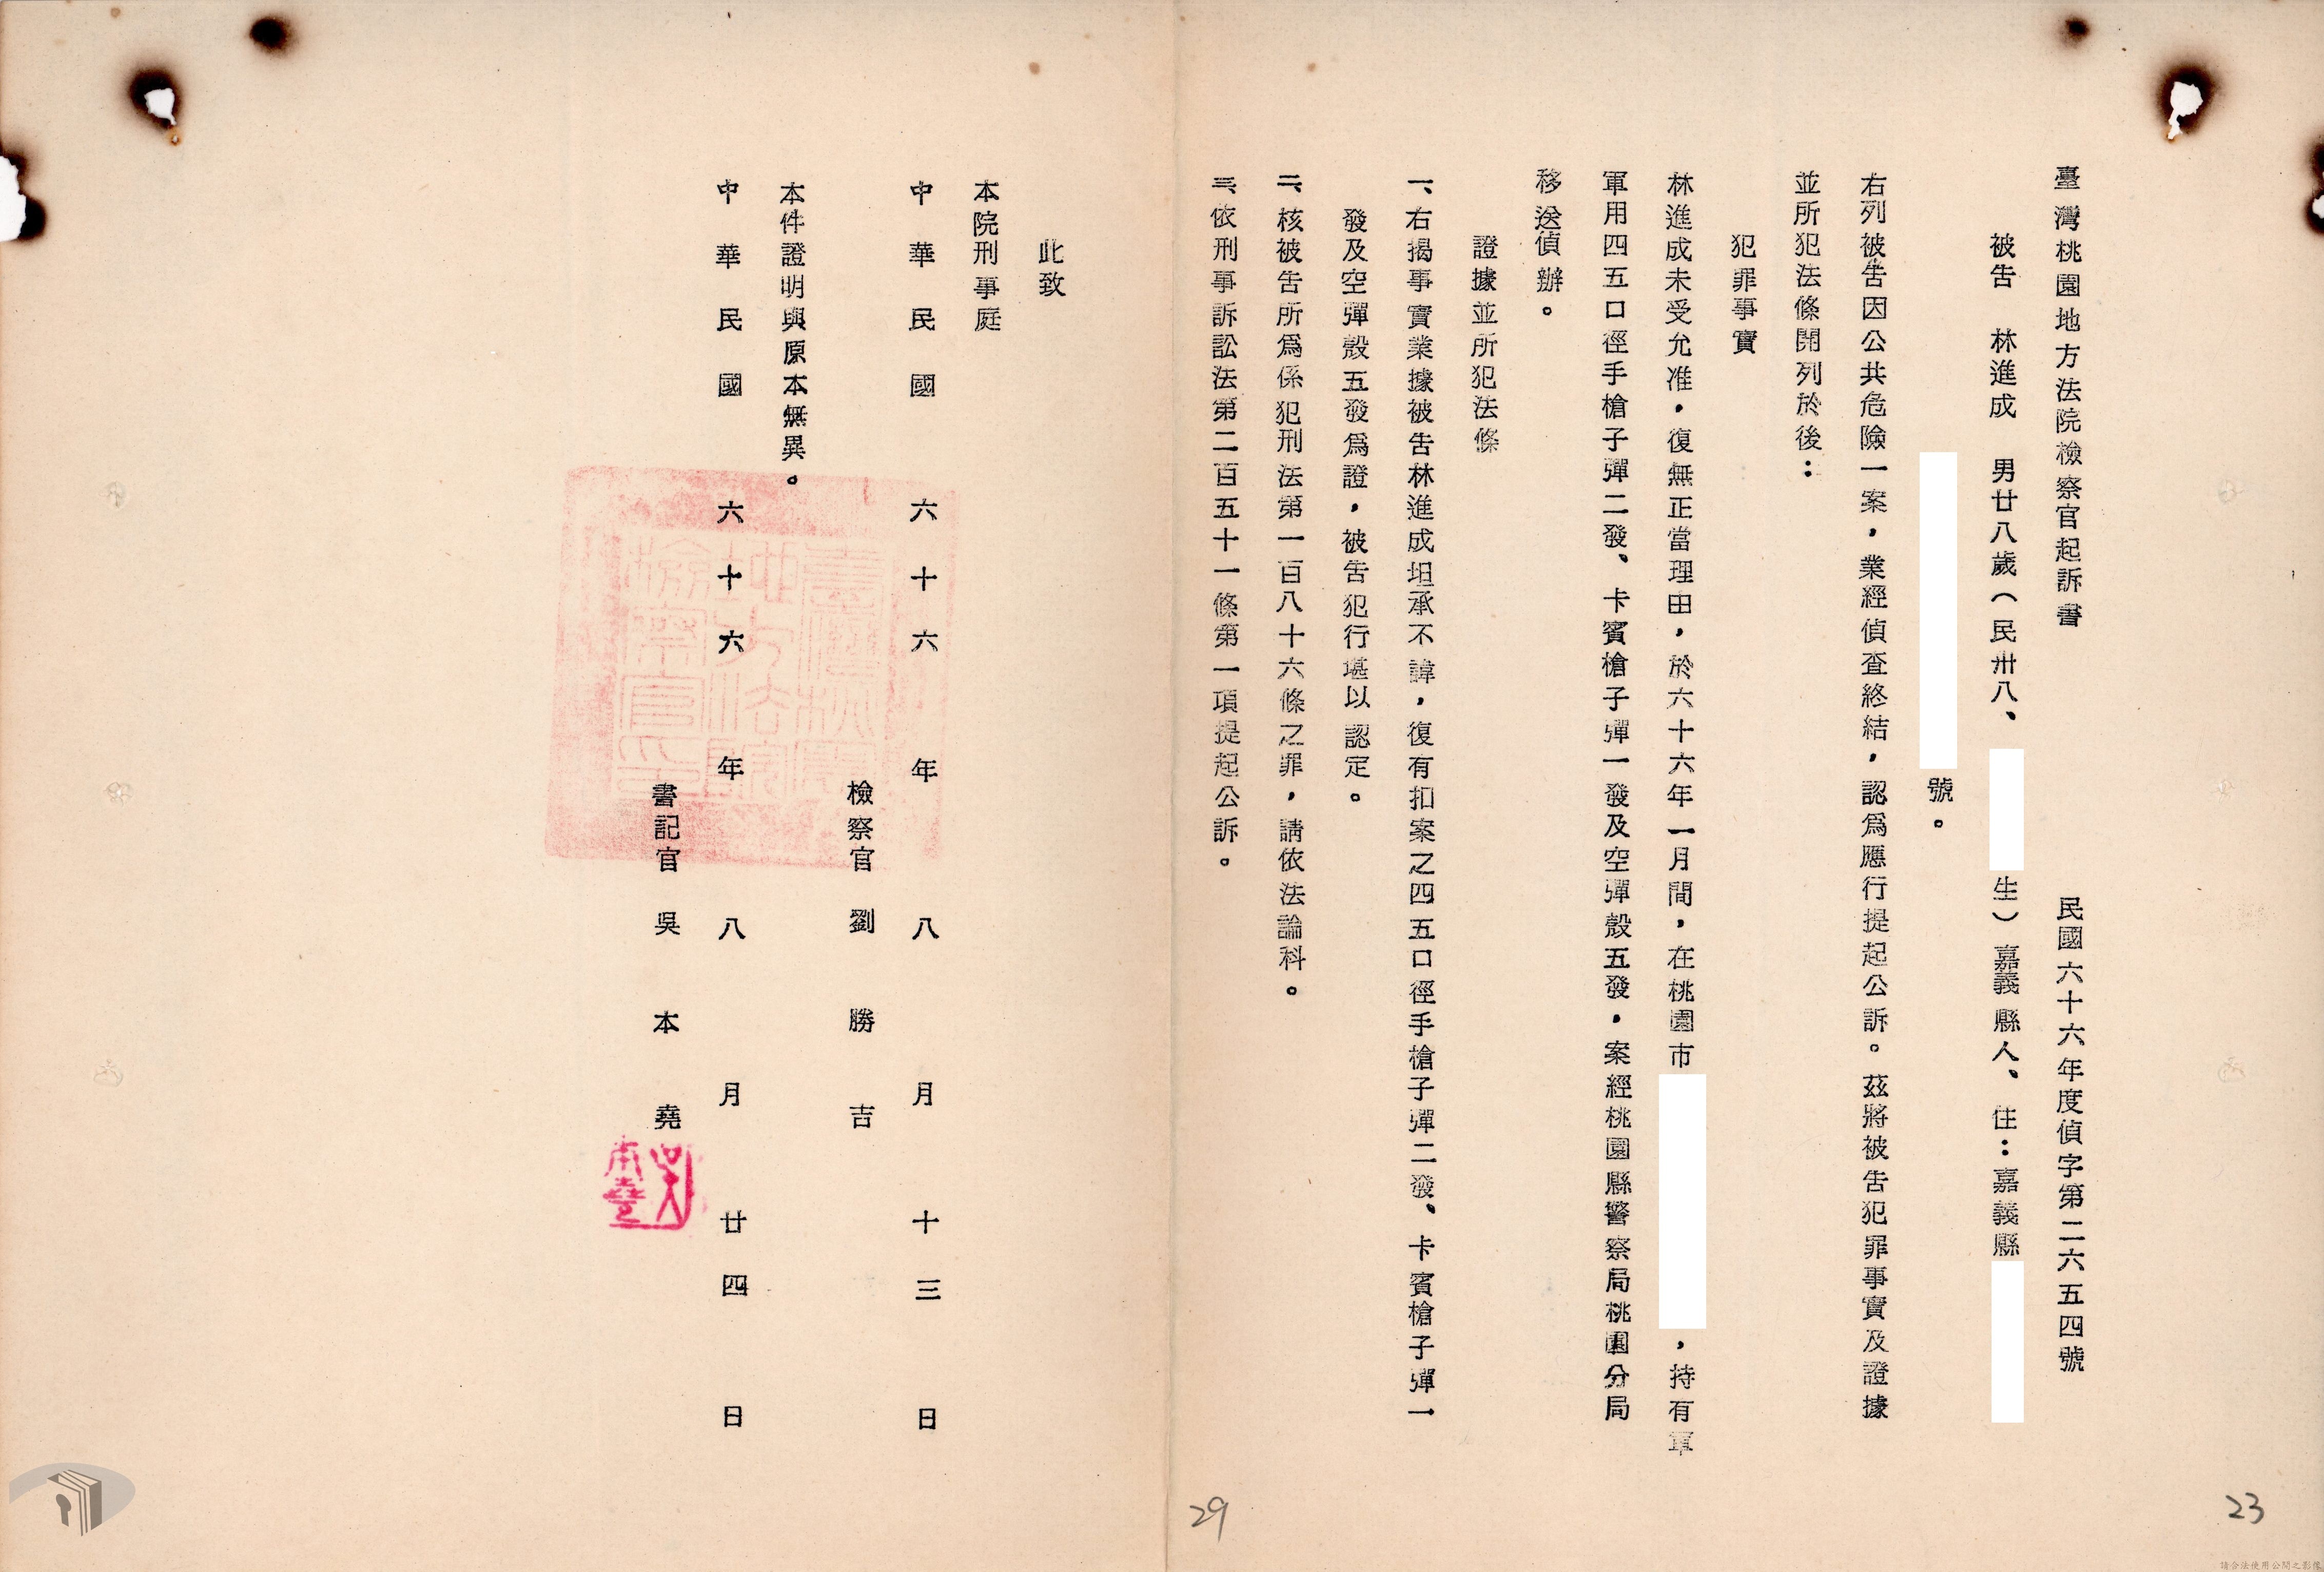 臺灣桃園地方法院檢察官起訴書　民國六十六年度偵字第二六五四號
被告　林進成　男廿八歲（民卅八、生）嘉義縣人、住：嘉義縣
號。
右列被告因公共危險一案，業經偵查終結，認爲應行提起公訴。茲將被告犯罪事實及證據
並所犯法條開列於後：
犯罪事實
林進成未受允准，復無正當理由，於六十六年一月間，在桃園市，持有軍
軍用四五口徑手槍子彈二發、卡賓槍子彈一發及空彈殼五發，案經桃園縣警察局桃園分局
移送偵辦。
證據並所犯法條
一、右揭事實業據被告林進成坦承不諱，復有扣案之四五口徑手槍子彈二發、卡賓槍子彈一
發及空彈殼五發爲證，被告犯行堪以認定。
二、核被告所爲係犯刑法第一百八十六條之罪，請依法論科。
三、依刑事訴訟法第二百五十一條第一項提起公訴。
此致
本院刑事庭
中華民國六十六年八月十三日
檢察官　劉勝吉
本件證明與原本無異。
中華民國六十六年八月廿四日
書記官　吳本堯
臺灣桃園
地方法院
檢察官印
吳本堯
29
23
請合法使用公開之影像